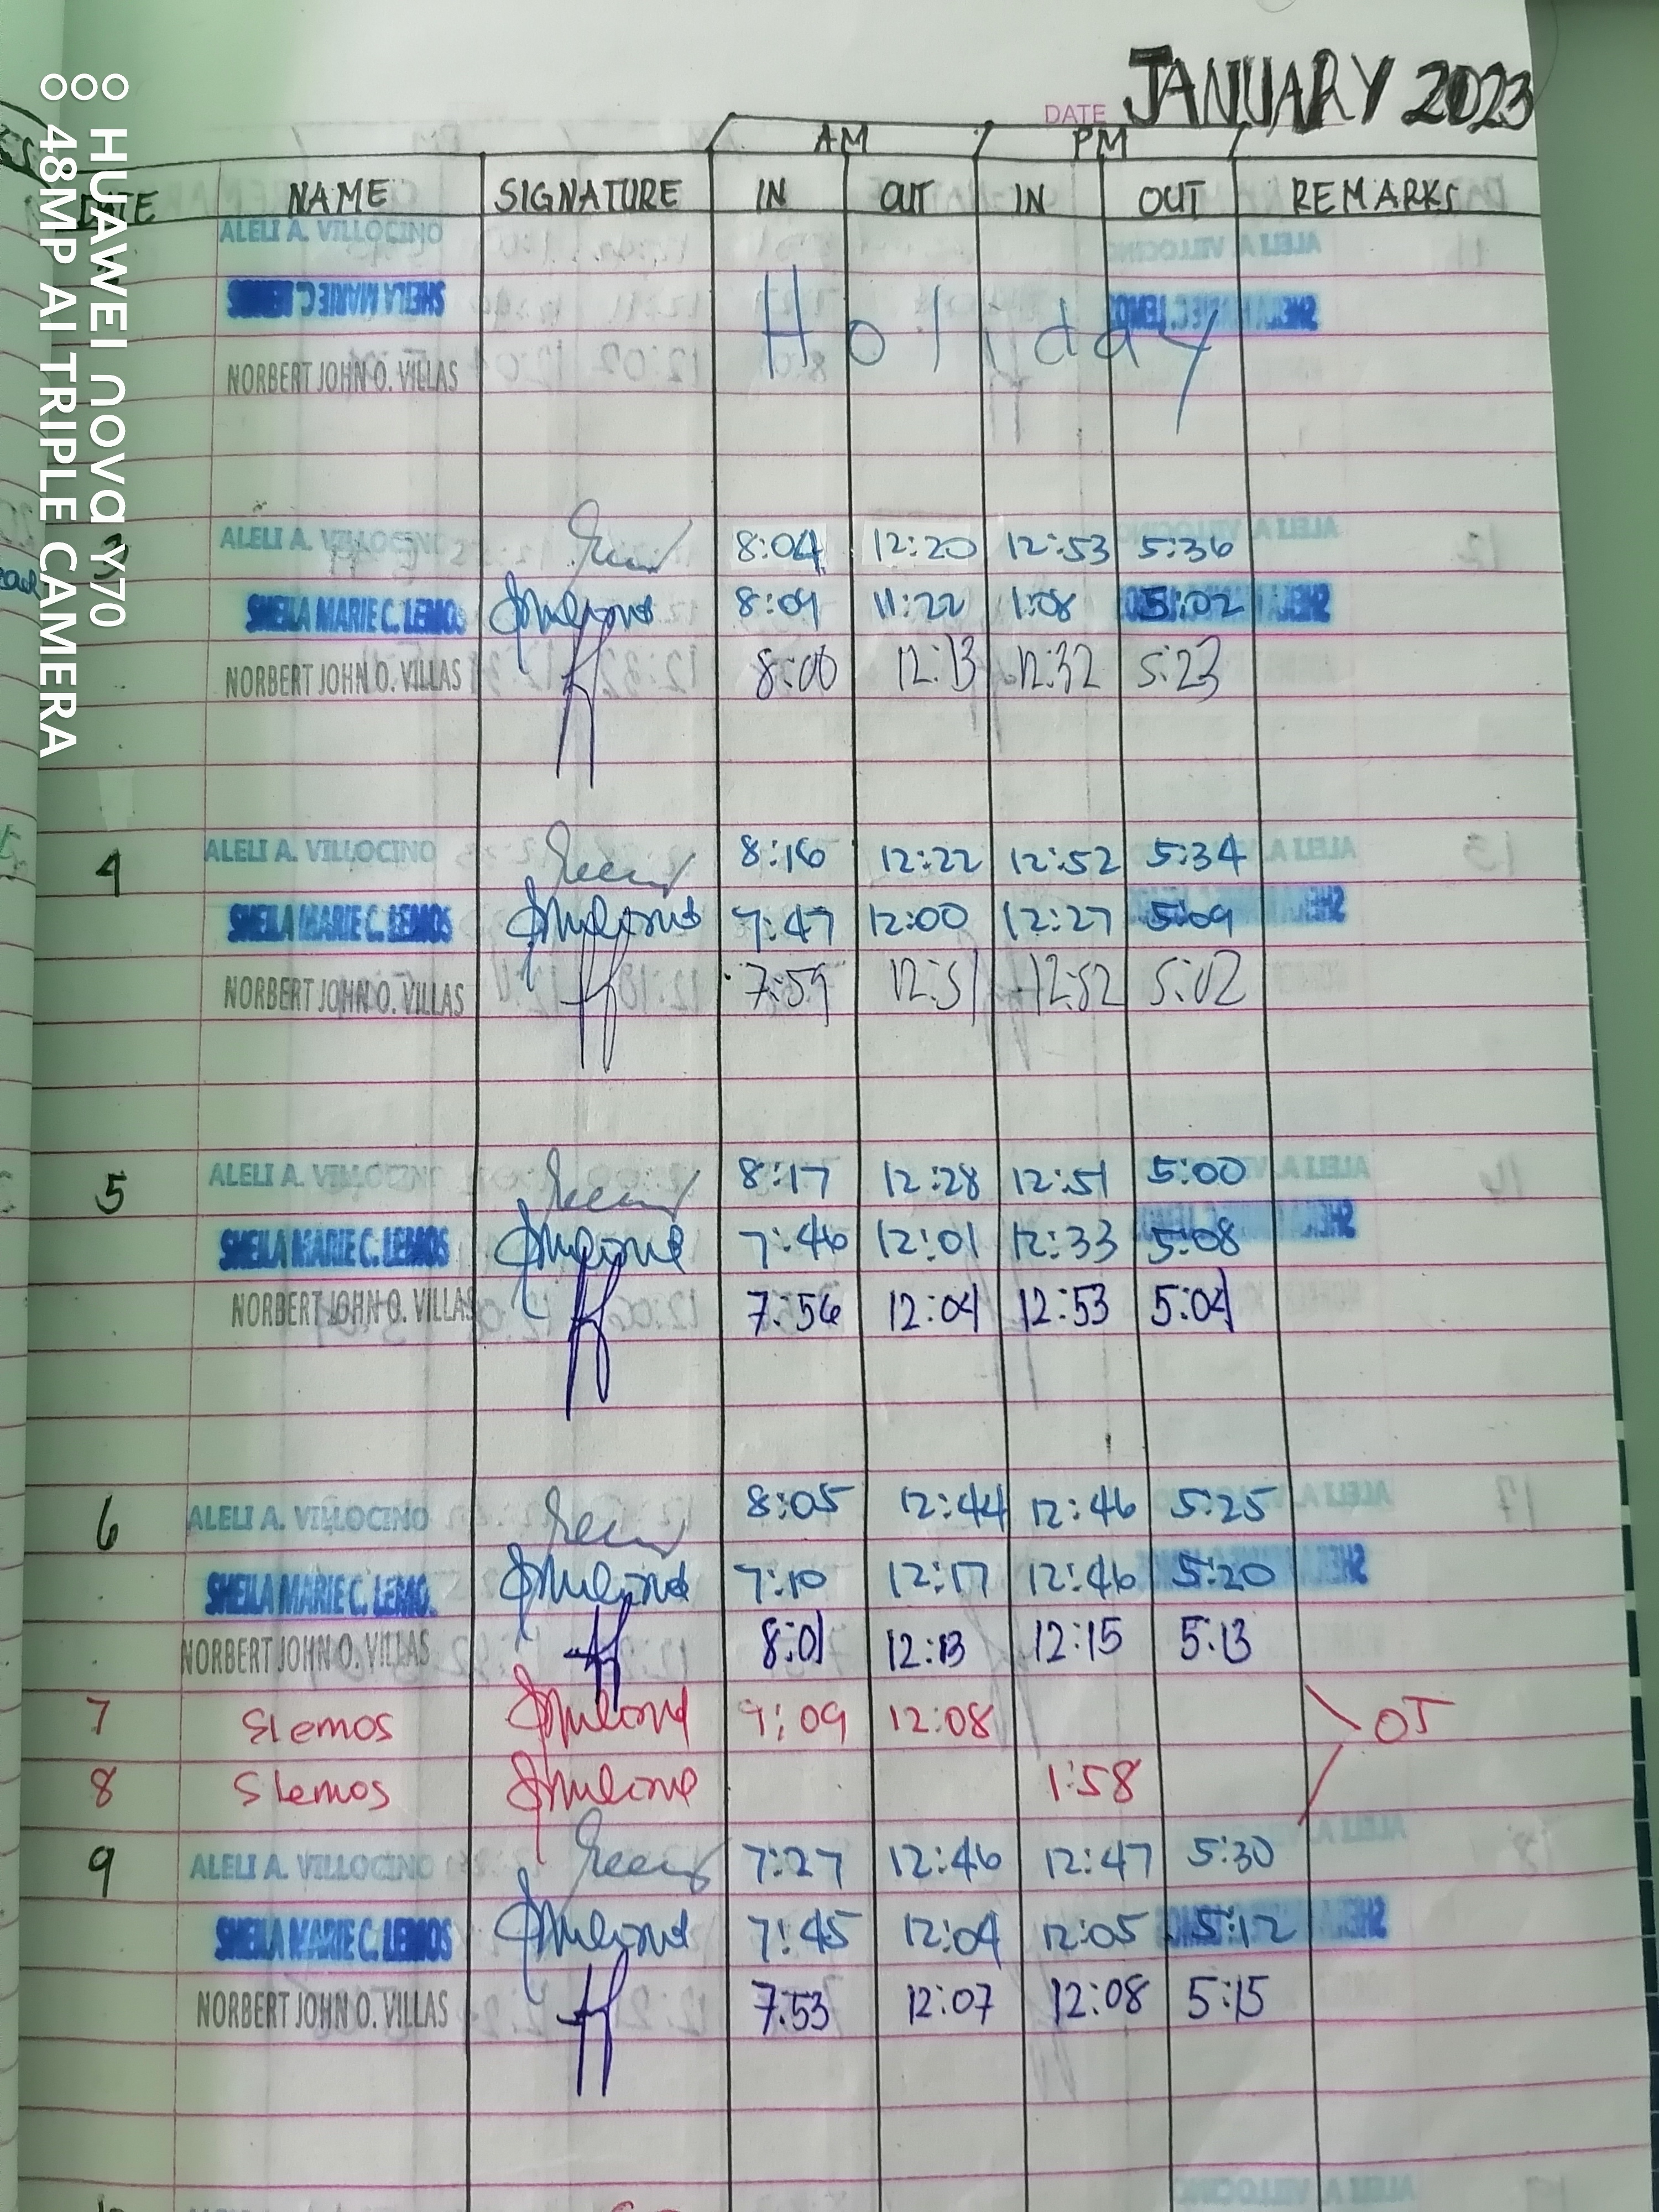 DATE JANUARY 2023
AM PM
DATE NAME SIGNATURE IN OUT IN OUT REMARKS
ALELI A. VILLOCINO
SHEILA MARIE C. LEMOS
Holiday
NORBERT JOHN O. VILLAS
3 ALELI A. VILLOCINO 8:04 12:20 12:53 5:36
SHEILA MARIE C. LEMOS 8:09 11:22 1:08 5:02
NORBERT JOHN O. VILLAS 8:00 12:13 12:32 5:23
4 ALELI A. VILLOCINO 8:16 12:22 12:52 5:34
SHEILA MARIE C. LEMOS 7:47 12:00 12:27 5:09
NORBERT JOHN O. VILLAS 7:59 12:51 12:52 5:02
5 ALELI A. VILLOCINO 8:17 12:28 12:51 5:00
SHEILA MARIE C. LEMOS 7:46 12:01 12:33 5:08
NORBERT JOHN O. VILLAS 7:56 12:04 12:53 5:04
6 ALELI A. VILLOCINO 8:05 12:44 12:46 5:25
SHEILA MARIE C. LEMO. 7:10 12:17 12:46 5:20
NORBERT JOHN O. VILLAS 8:01 12:13 12:15 5:13
7 Slemos 9:09 12:08 OT
8 Slemos 1:58
9 ALELI A. VILLOCINO 7:27 12:46 12:47 5:30
SHEILA MARIE C. LEMOS 7:45 12:04 12:05 5:12
NORBERT JOHN O. VILLAS 7:53 12:07 12:08 5:15
HUAWEI nova Y70
48MP AI TRIPLE CAMERA